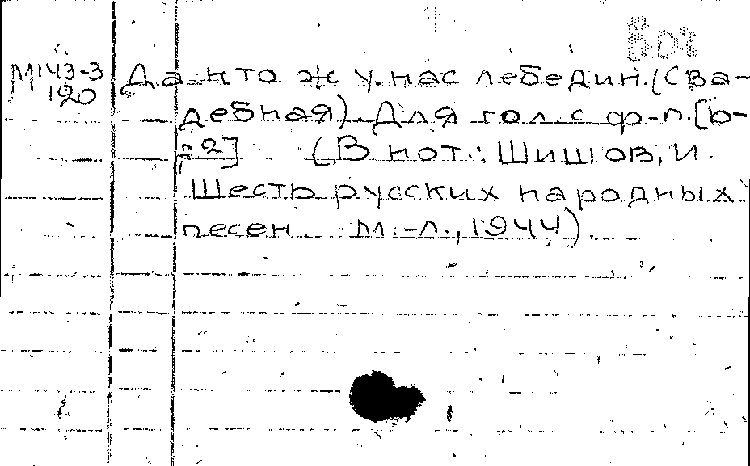 Вок
М143-3
120
Да кто ж у нас лебедин. (Сва-
дебная). Для гол. с ф-п. [b-
-2] (В нот.: Шишов, И.
Шесть русских народных
песен. М.-Л., 1944).